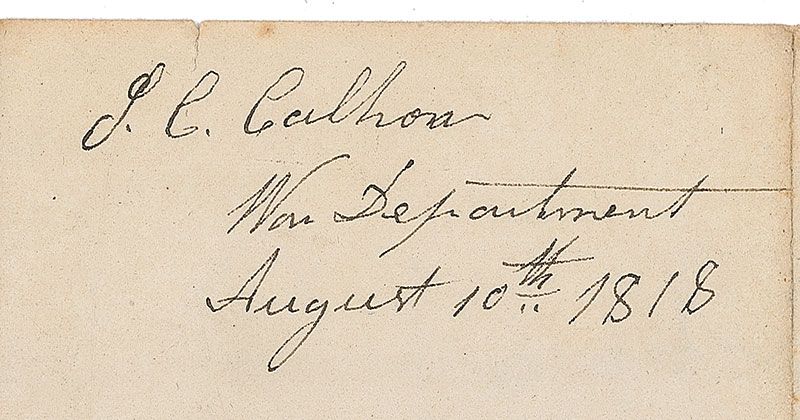 J. C. Calhoun
War Department
August 10th 1818